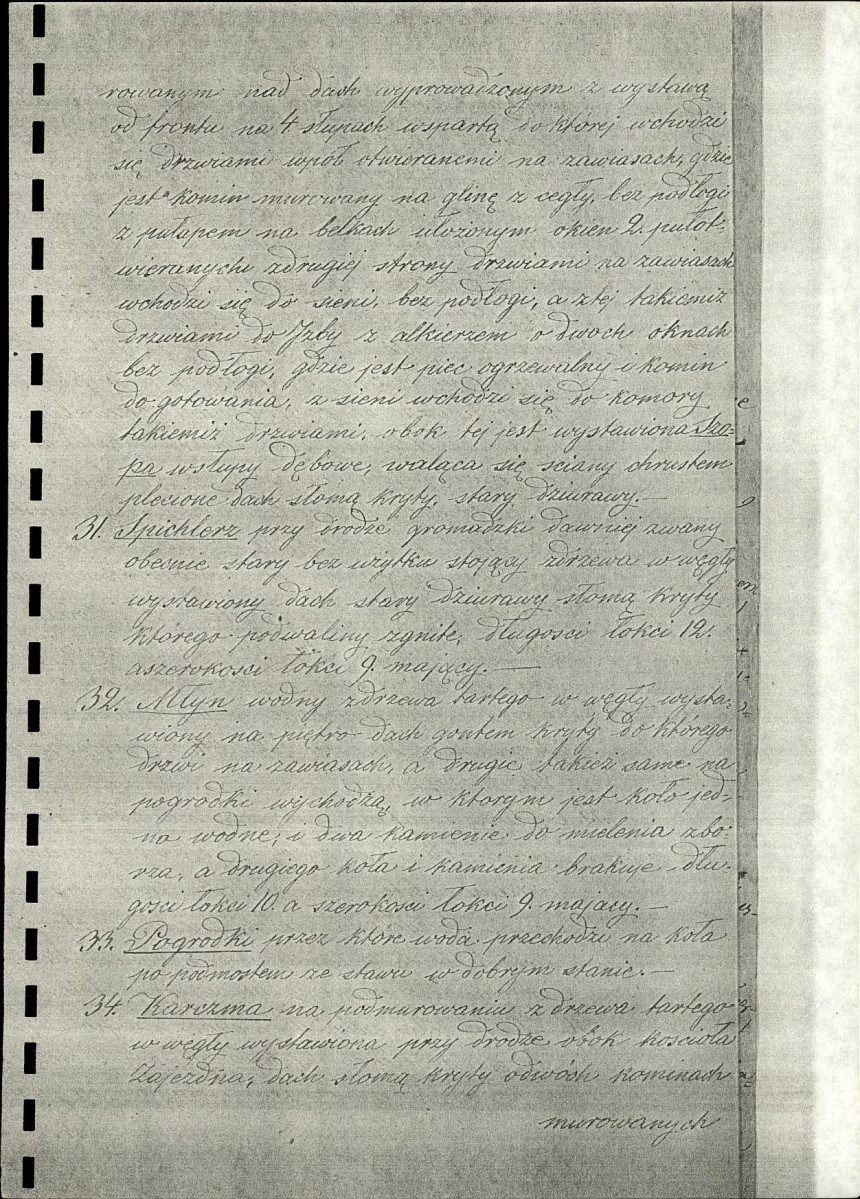 rowanym nad dach wyprowadzonym z wystawą
od frontu na 4 słupach wspartą do której wchodzi
się drzwiami wpół otwieranemi na zawiasach, gdzie
jest komin murowany na glinę z cegły, bez podłogi
z pułapem na belkach ułożonym okien 2. pułot-
wieranych zdrugiej strony drzwiami na zawiasach
wchodzi się do sieni, bez podłogi, a ztej takiemiż
drzwiami do Izby z alkierzem o dwoch oknach
bez podłogi, gdzie jest piec ogrzewalny i komin
do gotowania, z sieni wchodzi się do komory
takiemiż drzwiami, obok tej jest wystawiona Szo-
pa wsłupy dębowe, waląca się sciany chrustem
plecione dach słomą kryty, stary dziurawy.—
31. Spichlerz przy drodze gromadzki dawniej zwany
obecnie stary bez użytku stojący zdrzewa w węgły
wystawiony dach stary dziurawy słomą kryty
którego podwaliny zgnite, długosci łokci 12.
aszerokosci łokci 9. mający.—
32. Młyn wodny zdrzewa tartego w węgły wysta-
wiony na piętro dach gontem kryty do którego
drzwi na zawiasach, a drugie takież same na
pogrodki wychodzą, w ktorym jest koło jed-
no wodne, i dwa kamienie do mielenia zbo-
rza, a drugiego koła i kamienia brakuje dłu-
gosci łokci 10. a szerokosci łokci 9. mający.—
33. Pogrodki przez które woda przechodzi na koła
po podmostem ze stawu w dobrym stanie.—
34. Karczma na podmurowaniu z drzewa tartego
w węgły wystawiona przy drodze obok kościoła
Zajezdna, dach słomą kryty odwóch kominach
murowanych